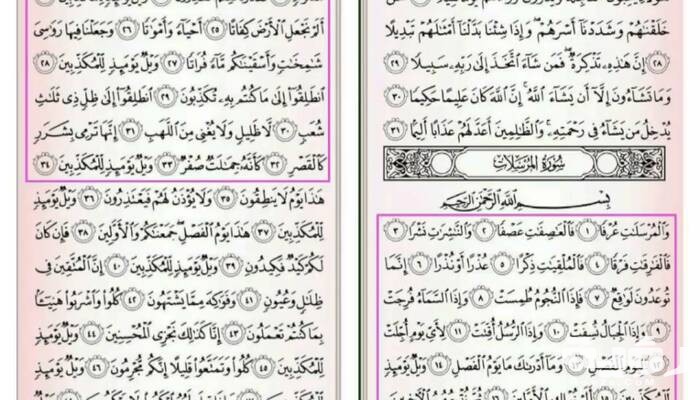 خَلَقْنَٰهُمْ وَشَدَدْنَآ أَسْرَهُمْ ۖ وَإِذَا شِئْنَا بَدَّلْنَآ أَمْثَٰلَهُمْ تَبْدِيلًا
٢٨ إِنَّ هَٰذِهِۦ تَذْكِرَةٌ ۖ فَمَن شَآءَ ٱتَّخَذَ إِلَىٰ رَبِّهِۦ سَبِيلًا ٢٩
وَمَا تَشَآءُونَ إِلَّآ أَن يَشَآءَ ٱللَّهُ ۚ إِنَّ ٱللَّهَ كَانَ عَلِيمًا حَكِيمًا ٣٠
يُدْخِلُ مَن يَشَآءُ فِى رَحْمَتِهِۦ ۚ وَٱلظَّٰلِمِينَ أَعَدَّ لَهُمْ عَذَابًا أَلِيمًۢا ٣١
سُورَةُ المُرْسَلَات
بِسْمِ ٱللَّهِ ٱلرَّحْمَٰنِ ٱلرَّحِيمِ
وَٱلْمُرْسَلَٰتِ عُرْفًا ١ فَٱلْعَٰصِفَٰتِ عَصْفًا ٢ وَٱلنَّٰشِرَٰتِ نَشْرًا ٣
فَٱلْفَٰرِقَٰتِ فَرْقًا ٤ فَٱلْمُلْقِيَٰتِ ذِكْرًا ٥ عُذْرًا أَوْ نُذْرًا ٦ إِنَّمَا
تُوعَدُونَ لَوَٰقِعٌ ٧ فَإِذَا ٱلنُّجُومُ طُمِسَتْ ٨ وَإِذَا ٱلسَّمَآءُ فُرِجَتْ
٩ وَإِذَا ٱلْجِبَالُ نُسِفَتْ ١٠ وَإِذَا ٱلرُّسُلُ أُقِّتَتْ ١١ لِأَىِّ يَوْمٍ أُجِّلَتْ
١٢ لِيَوْمِ ٱلْفَصْلِ ١٣ وَمَآ أَدْرَىٰكَ مَا يَوْمُ ٱلْفَصْلِ ١٤ وَيْلٌ يَوْمَئِذٍ
أَلَمْ نَجْعَلِ ٱلْأَرْضَ كِفَاتًا ٢٥ أَحْيَآءً وَأَمْوَٰتًا ٢٦ وَجَعَلْنَا فِيهَا رَوَٰسِىَ
شَٰمِخَٰتٍ وَأَسْقَيْنَٰكُم مَّآءً فُرَاتًا ٢٧ وَيْلٌ يَوْمَئِذٍ لِّلْمُكَذِّبِينَ ٢٨
ٱنطَلِقُوٓا۟ إِلَىٰ مَا كُنتُم بِهِۦ تُكَذِّبُونَ ٢٩ ٱنطَلِقُوٓا۟ إِلَىٰ ظِلٍّ ذِى ثَلَٰثِ
شُعَبٍ ٣٠ لَّا ظَلِيلٍ وَلَا يُغْنِى مِنَ ٱللَّهَبِ ٣١ إِنَّهَا تَرْمِى بِشَرَرٍ
كَٱلْقَصْرِ ٣٢ كَأَنَّهُۥ جِمَٰلَتٌ صُفْرٌ ٣٣ وَيْلٌ يَوْمَئِذٍ لِّلْمُكَذِّبِينَ ٣٤
هَٰذَا يَوْمُ لَا يَنطِقُونَ ٣٥ وَلَا يُؤْذَنُ لَهُمْ فَيَعْتَذِرُونَ ٣٦ وَيْلٌ يَوْمَئِذٍ
لِّلْمُكَذِّبِينَ ٣٧ هَٰذَا يَوْمُ ٱلْفَصْلِ ۖ جَمَعْنَٰكُمْ وَٱلْأَوَّلِينَ ٣٨ فَإِن كَانَ
لَكُمْ كَيْدٌ فَكِيدُونِ ٣٩ وَيْلٌ يَوْمَئِذٍ لِّلْمُكَذِّبِينَ ٤٠ إِنَّ ٱلْمُتَّقِينَ فِى
ظِلَٰلٍ وَعُيُونٍ ٤١ وَفَوَٰكِهَ مِمَّا يَشْتَهُونَ ٤٢ كُلُوا۟ وَٱشْرَبُوا۟ هَنِيٓـًٔۢا
بِمَا كُنتُمْ تَعْمَلُونَ ٤٣ إِنَّا كَذَٰلِكَ نَجْزِى ٱلْمُحْسِنِينَ ٤٤ وَيْلٌ يَوْمَئِذٍ
لِّلْمُكَذِّبِينَ ٤٥ كُلُوا۟ وَتَمَتَّعُوا۟ قَلِيلًا إِنَّكُم مُّجْرِمُونَ ٤٦ وَيْلٌ يَوْمَئِذٍ